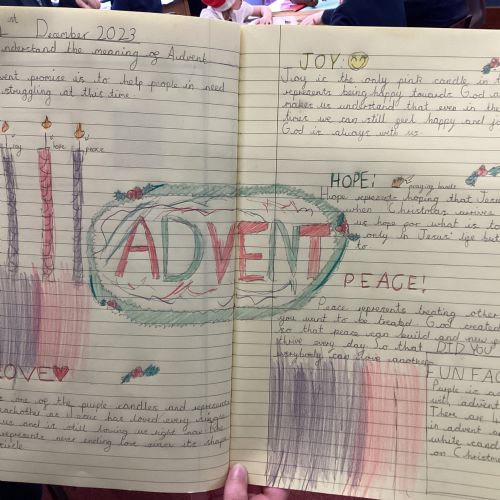 1st December 2023
understand the meaning of Advent
promise is to help people in need
struggling at this time.
hope
peace
ADVENT
LOVE
one of the purple candles and represents
as it was has loved every single
us and is still loving us right now. The
represents never ending love since its shape
circle
JOY:
Joy is the only pink candle in
represents being happy towards God
makes us understand that even in the
times we can still feel happy and
God is always with us.
HOPE:
praying hands
Hope represents hoping that Jesus
when Christmas arrives
us hope for what is to
only in Jesus' life but
to
PEACE!
Peace represents treating other
you want to be treated. God created
so that peace can build and new
thrive every day. So that DID YOU
everybody can love another
FUN FAC
Purple is
with advent
There are
in advent
white cand
on Christm